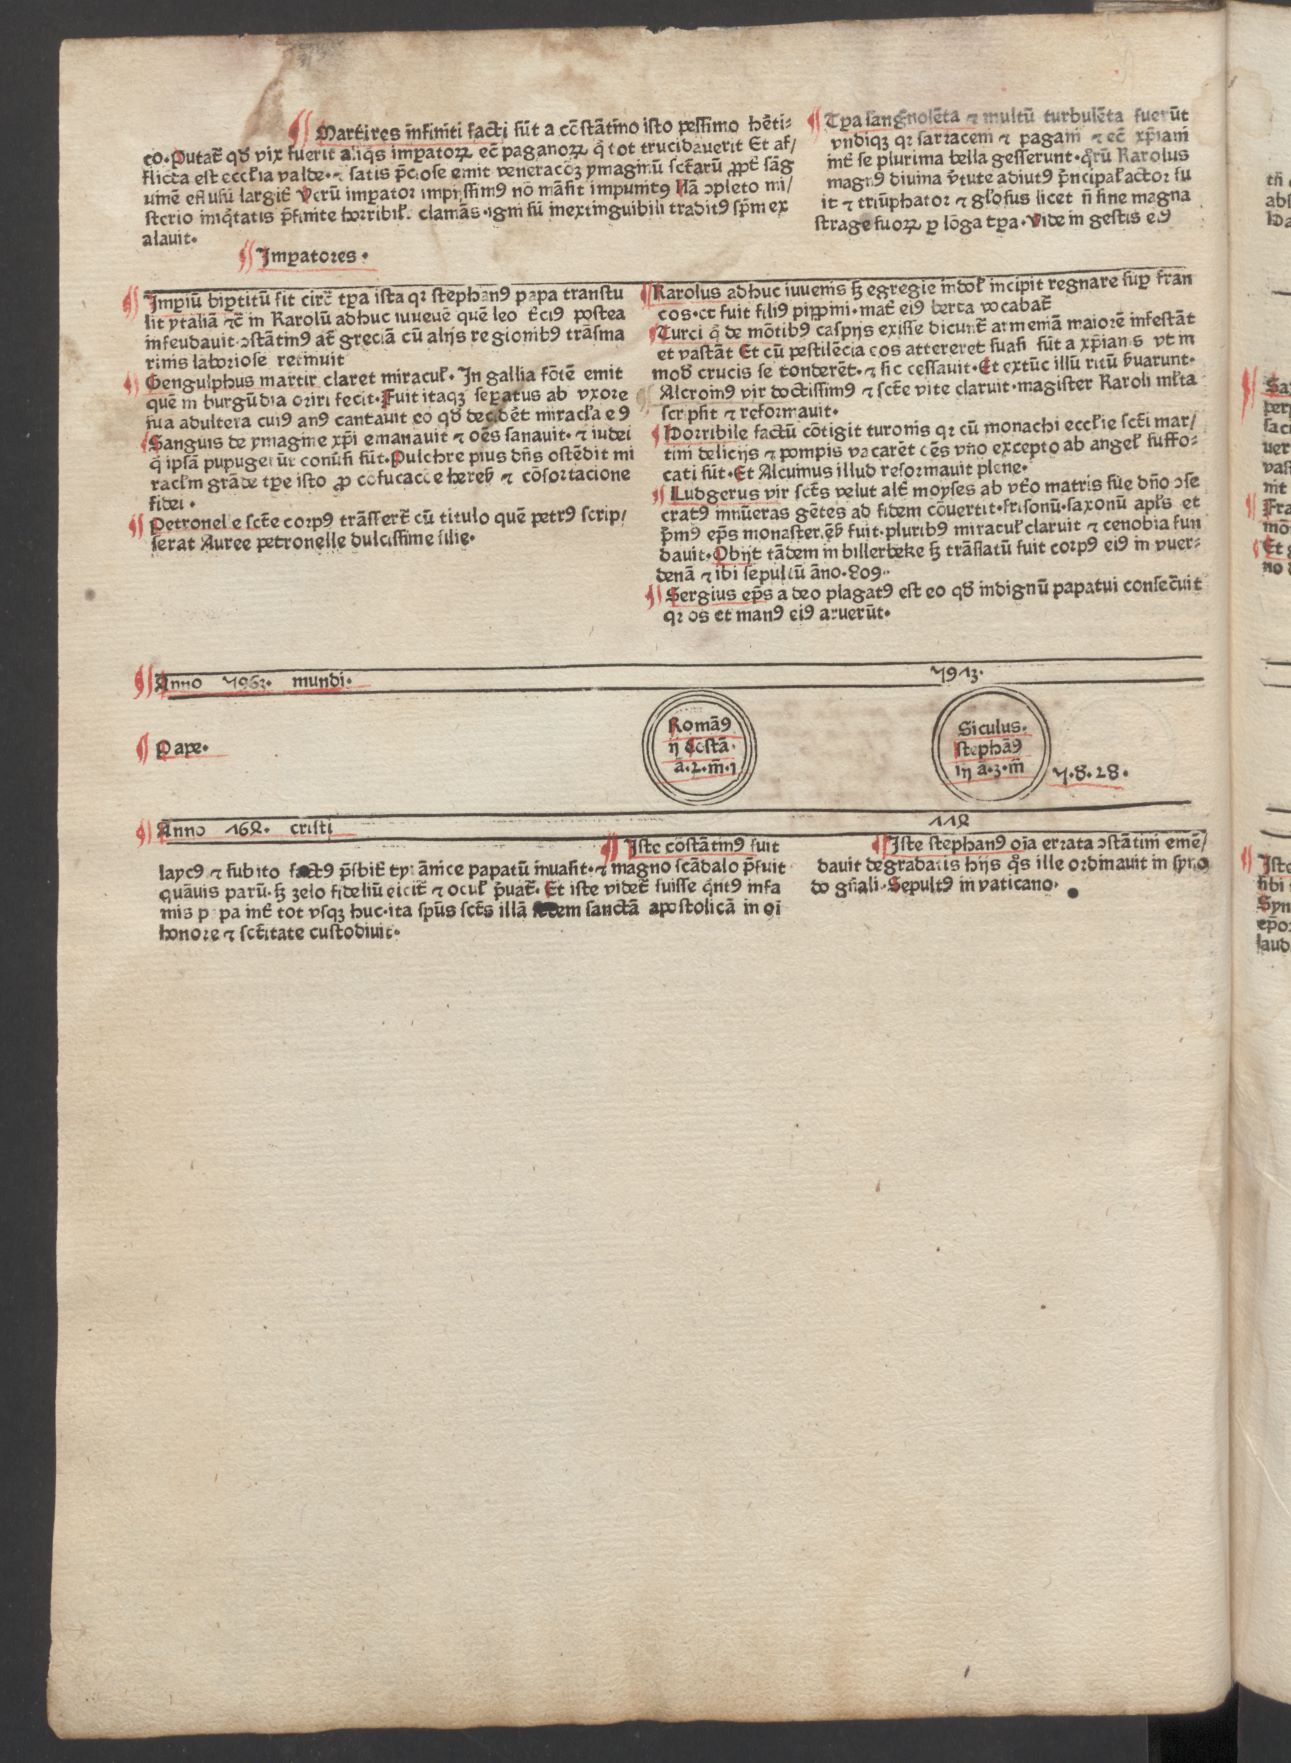 Martires infiniti facti sūt a cōstātino isto pessimo hēti⸗
co. Putat̄ qđ vix fuerit aliqs impatoꝝ ec̄ paganoꝝ q̄ tot trucidauerit Et af/
flicta est eccl̄ia valde. ⁊ satis p̄ciose emit veneracōꝫ ymaginū sctarū ꝓpt̄ sāg
Verū impator impijssimꝰ nō māsit impunitꝰ Nā ↄpleto mi/
sterio iniq̄tatis p̄finite horribil̄. clamās. igni sū inextinguibili traditꝰ sp̄m ex
alauit.
Tꝑa sanḡnolēta ⁊ multū turbulēta fuerūt
vndiqꝫ qꝛ sarraceni ⁊ pagani ⁊ ec̄ xp̄iani
int̄ se plurima bella gesserunt. q̄rū Karolus
magnꝰ diuina v̄tute adiutꝰ p̄ncipal̄ actor fu
it ⁊ triūphator ⁊ gl̄osus licet n̄ sine magna
strage suoꝝ ꝑ lōga tꝑa. Vide in gestis eiꝰ
Impatores.
Impiū biꝑtitū fit circ̄ tꝑa ista qꝛ stephanꝰ papa transtu
lit ytaliā ⁊c̄ in Karolū adhuc iuuenē quē leo t̄ciꝰ postea
infeudauit. ↄstātinꝰ at̄ greciā cū alijs regionibꝰ trāsma
rinis laboriose retinuit
Gengulphus martir claret miracul̄. In gallia fōtē emit
quē in burgūdia oriri fecit. Fuit itaqꝫ seꝑatus ab vxore
sua adultera cuiꝰ anꝰ cantauit eo qđ miracl̄a eꝰ
Sanguis de ymagine xp̄i emanauit ⁊ oēs sanauit. ⁊ iudei
q̄ ipsā pupugerūt conūsi sūt. Pulchre pius dn̄s ostēdit mi
racl̄m grāde tꝑe isto ꝓ cōfucacōe hereꝭ ⁊ cōfortacione
fidei.
Petronelle scte corpꝰ trāsfert̄ cū titulo quē petrꝰ scrip/
serat Auree petronelle dulcissime filie.
Karolus adhuc iuuenis sꝫ egregie indol̄ incipit regnare suꝑ fran
cos. et fuit filiꝰ pippini. mat̄ eiꝰ berta vocabat̄
Turci q̄ de mōtibꝰ caspijs exisse dicunt̄ armeniā maiorē infestāt
et vastāt Et cū pestilēcia eos attereret suasi sūt a xp̄ianis vt in
modꝰ crucis se tonderēt. ⁊ sic cessauit. Et extūc illū ritū s̄uarunt.
Alcroinꝰ vir doctissimꝰ ⁊ scte vite claruit. magister Karoli ml̄ta
scripsit ⁊ reformauit.
Horribile factū cōtigit turonis qꝛ cū monachi eccl̄ie scti mar/
tini delicijs ⁊ pompis vacarēt oēs vno excepto ab angel̄ suffo⸗
cati sūt. Et Alcuinus illud reformauit plene.
Ludgerus vir scts velut alt̄ moyses ab vt̄o matris sue dn̄o ↄse
cratꝰ innūeras gētes ad fidem cōuertit. frisonū. saxonū apl̄s et
p̄mꝰ ep̄s monasteriēꝭ fuit. pluribꝰ miracul̄ claruit ⁊ cenobia fun
dauit. Obijt tādem in billerbeke sꝫ trāslatū fuit corpꝰ eiꝰ in vuer⸗
denā ⁊ ibi sepultū āno. 809.
Sergius ep̄s a deo plagatꝰ est eo qđ indignū papatui consec̄uit
qꝛ os et manꝰ eiꝰ aruerūt.
Anno 5963. mundi. 5973.
Pape.
Romāꝰ
ij Cōstā.
ā. 2. m̄. 1
Siculus.
stephāꝰ
iij ā. 3. m̄
5. d. 28.
Anno 764. cristi 774
Iste cōstātinꝰ fuit
laycꝰ ⁊ subito factꝰ p̄sbit̄ tyrānice papatū inuasit. ⁊ magno scādalo p̄fuit
quāuis parū. sꝫ zelo fideliū eicit̄ ⁊ ocul̄ p̄uat̄. Et iste videt̄ fuisse q̄ntꝰ infa
mis papa int̄ tot vsqꝫ huc. ita spūs scts illā sedem sanctā apostolicā in oi
honore ⁊ sctitate custodiuit.
Iste stephanꝰ oia errata ↄstātini emē/
dauit degradatis hijs qs ille ordinauit in syno
do gn̄ali. Sepultꝰ in vaticano.